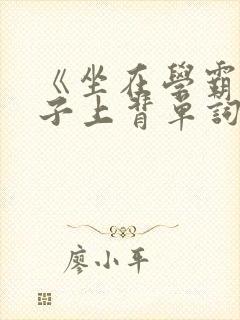 《坐在學霸
子上背單詞
廖小平